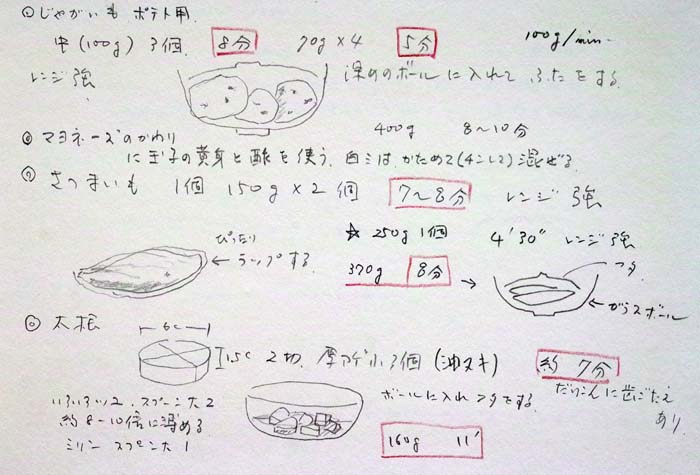 ◎じゃがいも ポテト用
中(100g) 3個 8分 70g×4 5分 100g/min.
レンジ強 深めのボールに入れて ふたをする.
◎マヨネーズのかわり 400g 8〜10分
に玉子の黄身と酢を使う. 白ミはかためて(チンして)混ぜる.
◎さつまいも 1個 150g×2個 7〜8分 レンジ強
☆250g 1個 4'30" レンジ強
ぴったり
←ラップする.
370g 8分 →
フタ
←ガラスボール
◎大根 6c
1.5c 2切. 厚アゲ小3個(油ヌキ) 約7分
ボールに入れフタをする. だいこんに歯ごたえ
あり.
スプーン大2
約8〜10倍に薄める
ミリン スプーン大1
160g 11'